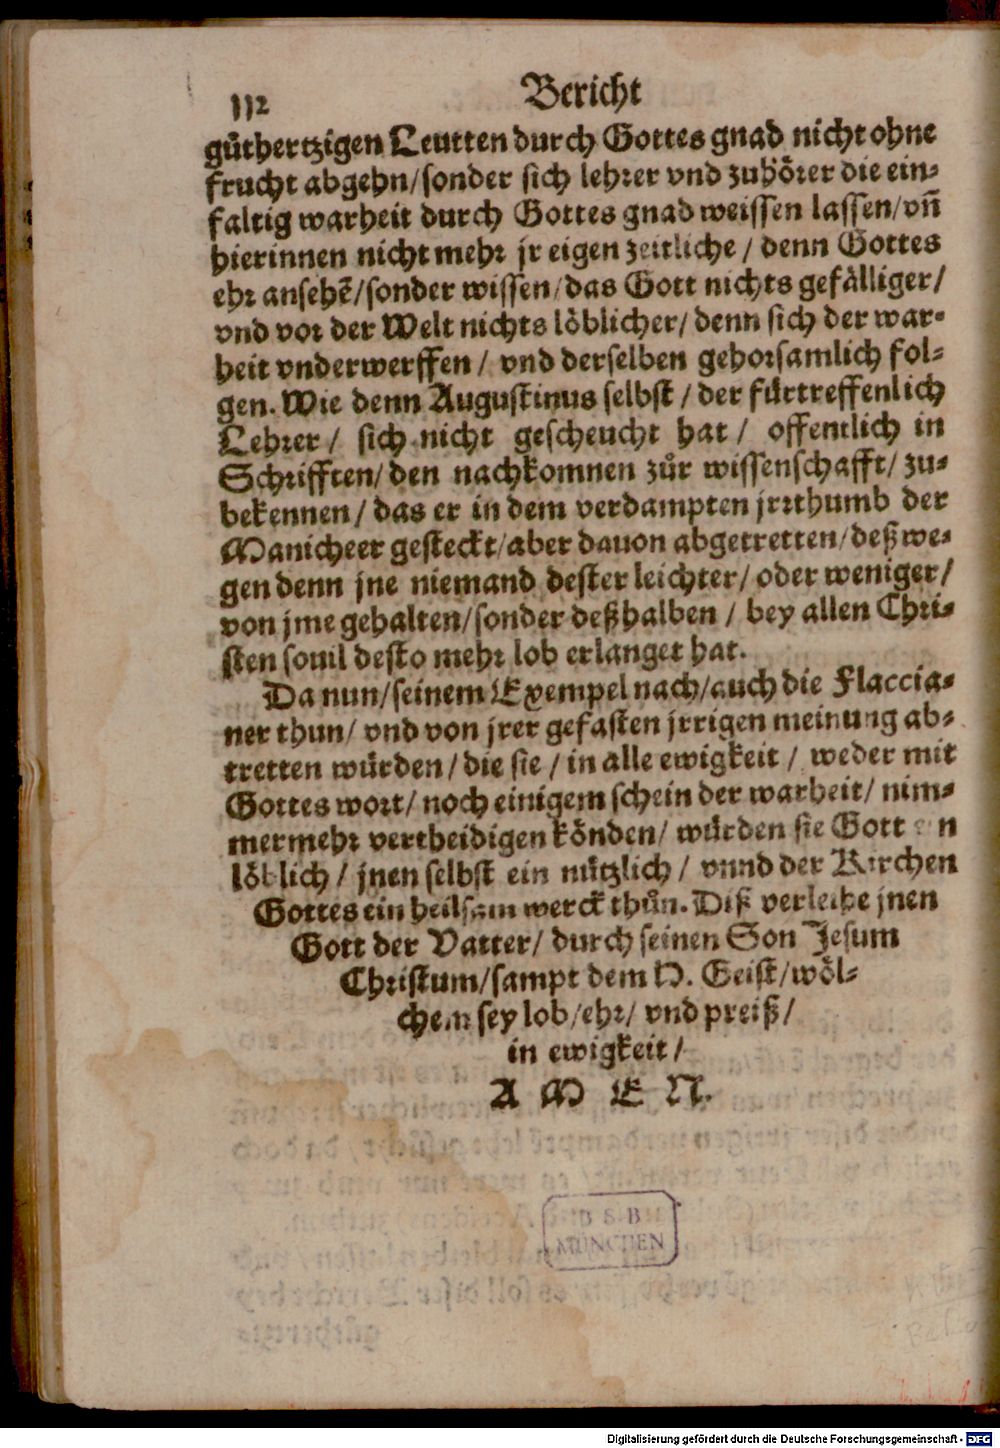 112 Bericht
gůthertzigen Leutten durch Gottes gnad nicht ohne
frucht abgehn/sonder sich lehrer vnd zuhörer die ein-
faltig warheit durch Gottes gnad weissen lassen/vñ
hierinnen nicht mehr jr eigen zeitliche / denn Gottes
ehr ansehẽ/sonder wissen/das Gott nichts gefälliger/
vnd vor der Welt nichts löblicher/ denn sich der war-
heit vnderwerffen / vnd derselben gehorsamlich fol-
gen. Wie denn Augustinus selbst / der fürtreffenlich
Lehrer / sich nicht gescheucht hat / offentlich in
Schrifften/ den nachkomnen zůr wissenschafft/ zu-
bekennen / das er in dem verdampten jrrthumb der
Manicheer gesteckt/aber dauon abgetretten/deß we-
gen denn jne niemand dester leichter/ oder weniger/
von jme gehalten/sonder deßhalben / bey allen Chri-
sten souil desto mehr lob erlanget hat.
Da nun/seinem Exempel nach/auch die Flaccia-
ner thun/ vnd von jrer gefasten jrrigen meinung ab-
tretten würden / die sie / in alle ewigkeit / weder mit
Gottes wort/ noch einigem schein der warheit/ nim-
mermehr vertheidigen könden/ würden sie Gott ein
löblich / jnen selbst ein nützlich / vnnd der Kirchen
Gottes ein heilsam werck thůn. Diß verleihe jnen
Gott der Vatter/ durch seinen Son Jesum
Christum/sampt dem H. Geist/wöl-
chem sey lob/ehr/ vnd preiß/
in ewigkeit /
A M E N.
BSB
MÜNCHEN
Digitalisierung gefördert durch die Deutsche Forschungsgemeinschaft - DFG